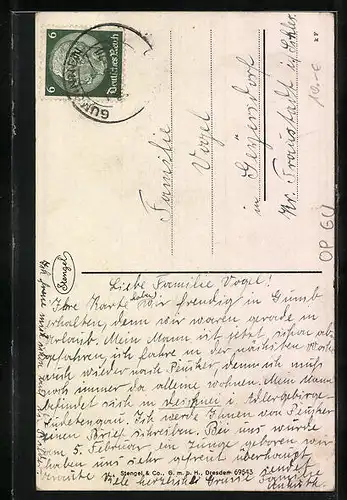 6 Deutsches Reich 6
GUM
Familie
Vogel
in Geyersdorf
Kr. Fraustadt i/Schles.
10.-€
OP GU
Stengel
Liebe Familie Vogel!
Ihre Karte haben wir freudig in Gumb
erhalten, denn wir waren gerade in
Urlaub. Mein Mann ist jetzt schon ab
gefahren, ich fahre in der nächsten Woche
auch wieder nach denn ich muß
noch immer da alleine wohnen. Mein Mann
befindet sich in i Adlergebirge
Sudetengau. Ich werde Ihnen von
einen Brief schreiben. Bei uns wurde
am 5. Februar ein Junge geboren wir
haben uns sehr gefreut überhaupt
Viele herzliche Grüsse sendet
Familie
Stengel & Co., G. m. b. H., Dresden 69543